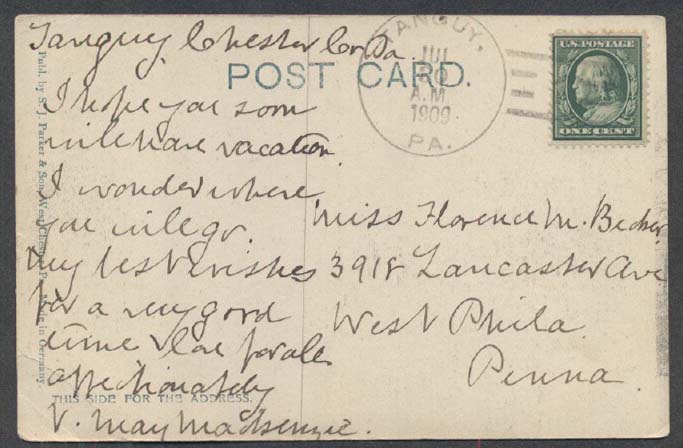 Tanguy, Chester Co. Pa.
POST CARD.
TANGUY,
JUL
30
A.M.
1909
PA.
U.S. POSTAGE
ONE CENT
I hope you soon
will have vacation.
I wonder where
you will go.
My best wishes
for a very good
time & love for all.
affectionately
V. May Mackenzie.
Miss Florence M. Becker.
3918 Lancaster Ave
West Phila.
Penna.
Publ. by S. J. Parker & Son, West Chester, Pa. Made in Germany.
THIS SIDE FOR THE ADDRESS.